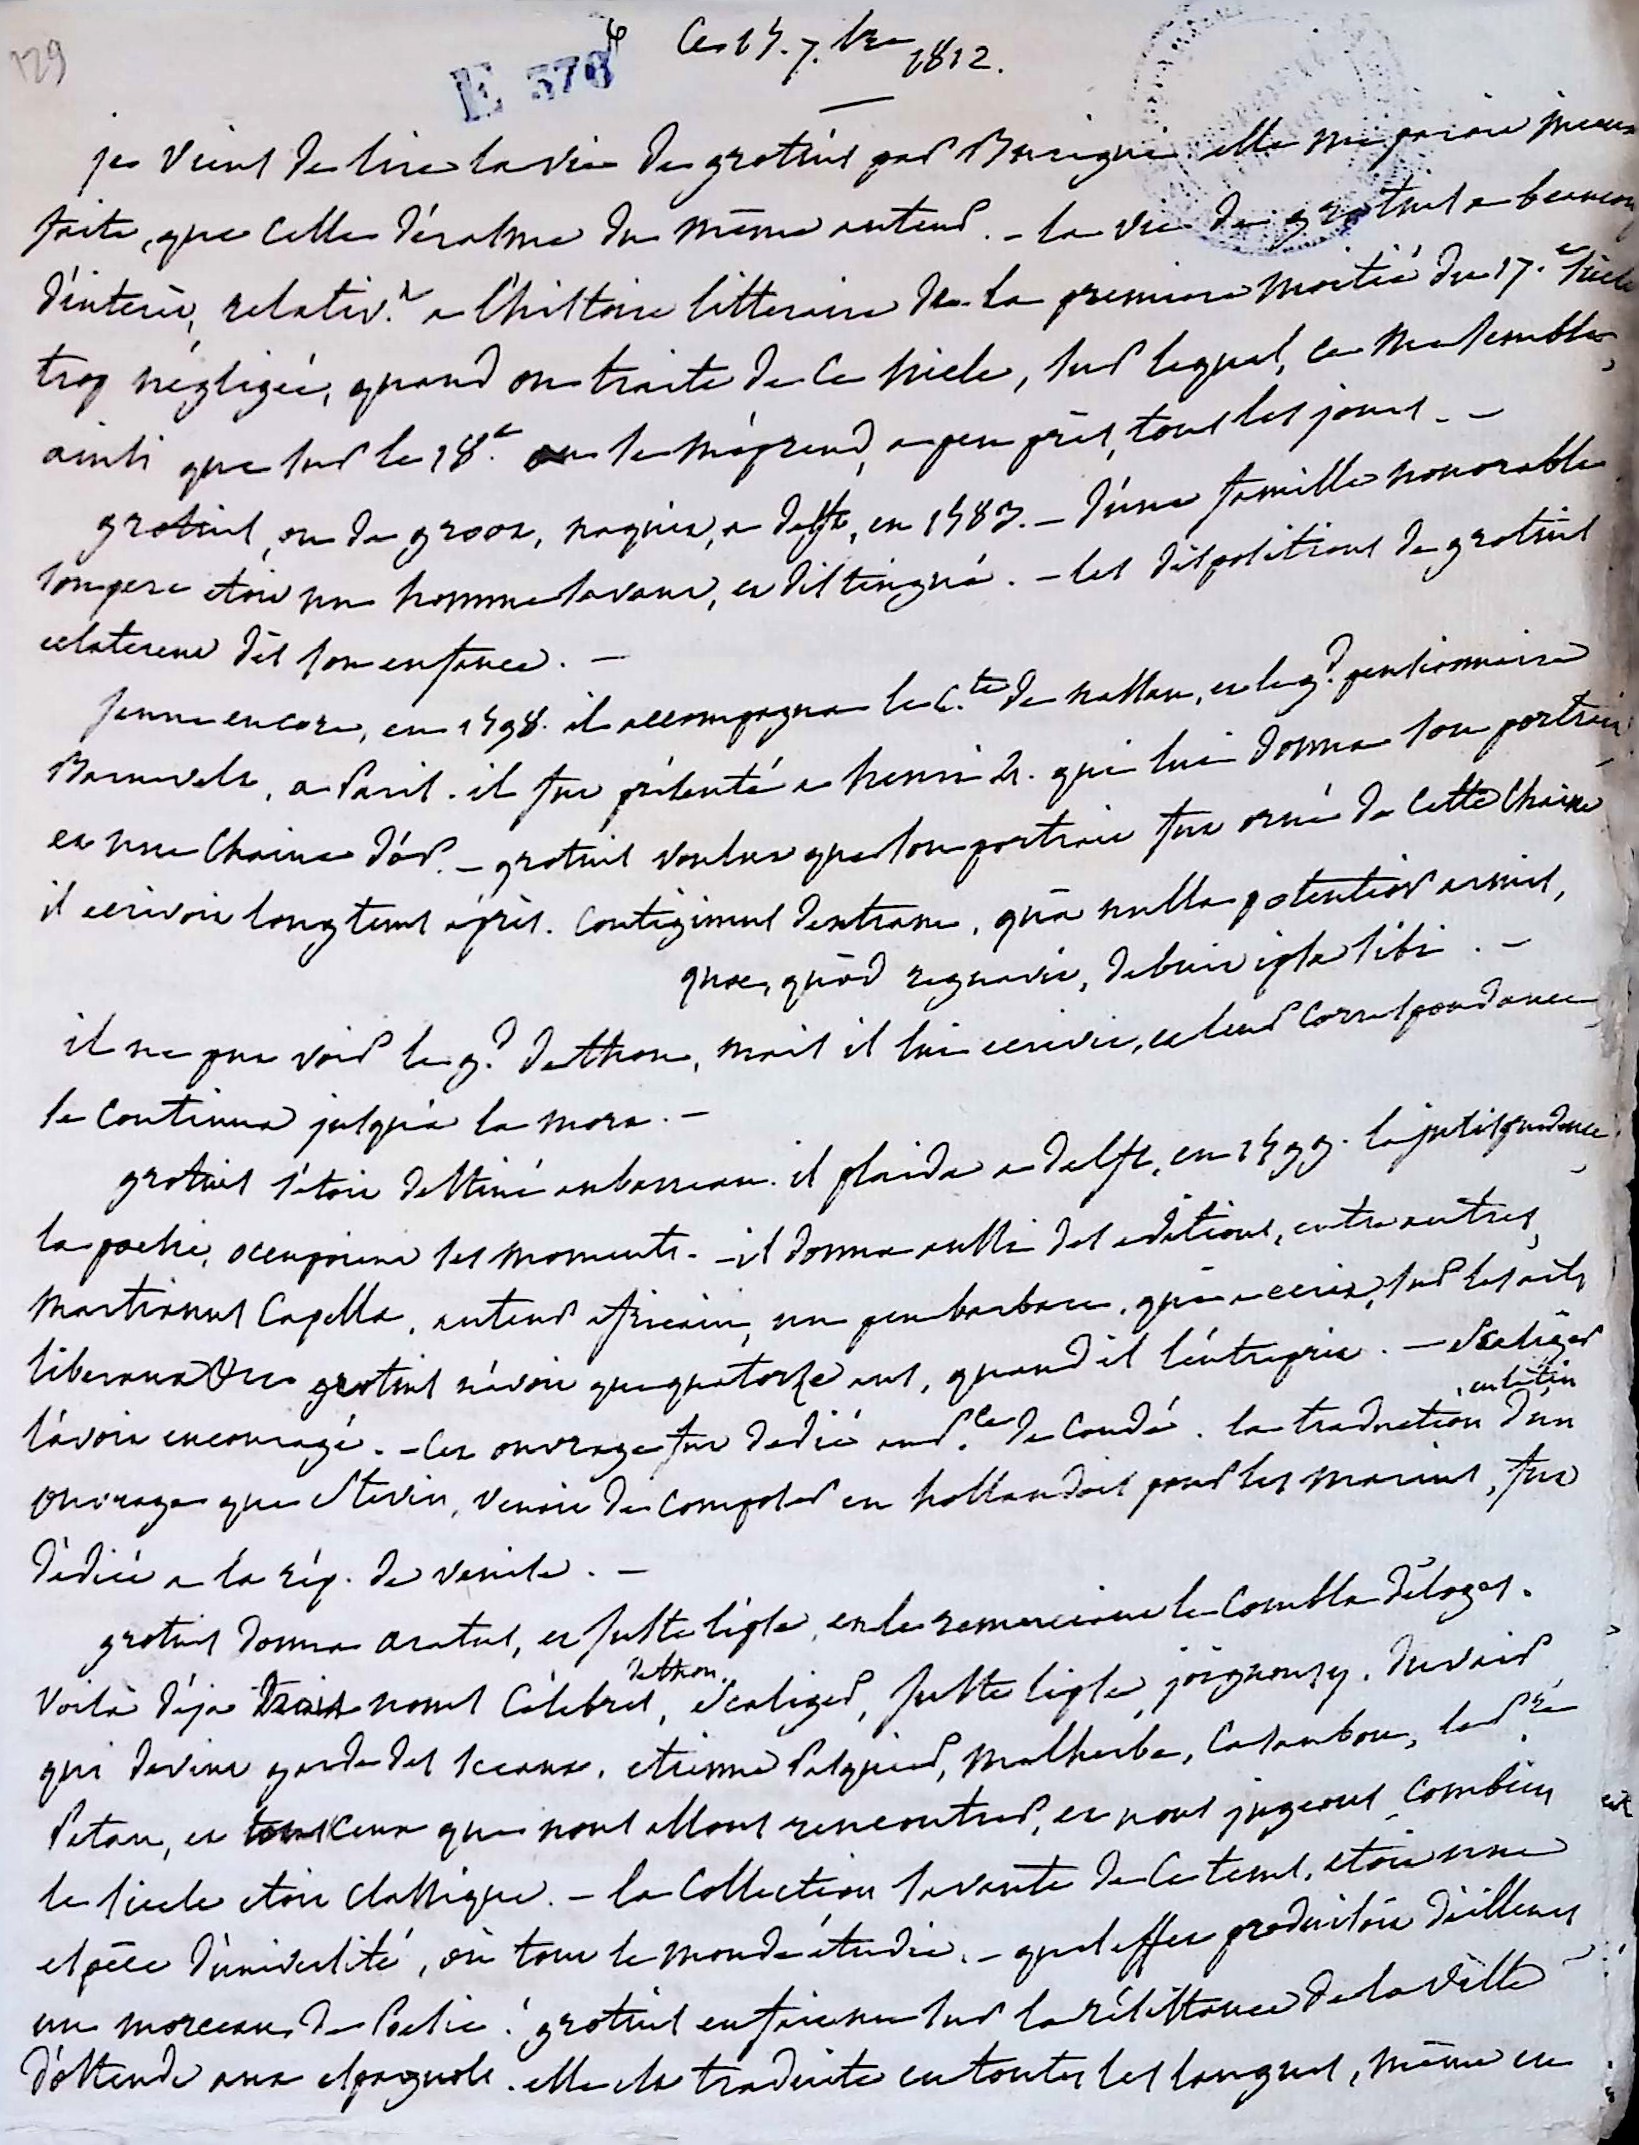 129
E 376
Ce 15. 7.bre 1812.
je viens de lire la vie de grotius par Burigni. elle me paroit mieux
faite, que celle d'érasme du même auteur. - la vie de grotius a beaucoup
d'intérêt, relativ.t a l'histoire litteraire de la premiere moitié du 17.e siecle
trop négligée, quand on traite de ce siecle, sur lequel, ce me semble,
ainsi que sur le 18.e on se méprend, a peu près, tous les jours. -
grotius, ou de groot, naquit, a delft, en 1583. - d'une famille honorable
son pere etoit un homme savant, et distingué. - les dispositions de grotius
eclaterent dès son enfance. -
jeune encore, en 1598. il accompagna le C.te de nassau, et le g.d pensionnaire
Barnevelt, a Paris. il fut présenté a henri 4. qui lui donna son portrait
et une chaine d'or. - grotius voulut que son portrait fut orné de cette chaine
il ecrivoit longtems après. contigimus dextram, quâ nulla potentior armis,
quae, quòd regnavit, debuit ipsa sibi. -
il ne put voir le g.d dethou, mais il lui ecrivit, et leur correspondance
se continua jusqu'a la mort. -
grotius s'étoit destiné au barreau. il plaida a delft, en 1599. la jurisprudence
la poesie, occupoient ses moments. - il donna aussi des editions, entre autres,
martianus Capella, auteur africain, un peu barbare, qui a ecrit, sur les arts
liberaux grotius n'avoit que quatorze ans, quand il l'entreprit. - Scaliger
l'avoit encouragé. - cet ouvrage fut dedié au p.ce de Condé. la traduction en latin d'un
ouvrage que Stevin, venoit de composer en hollandois pour les marins, fut
dédiée a la rép. de venise. -
grotius donna aratus, et juste lipse, en le remerciant le combla d'éloges.
voilà déja trois noms célebres, dethou, Scaliger, juste lipse, joignons y. duvair
qui devint garde des sceaux. etienne Pasquier, malherbe, Casaubon, le p.re
Petau, et tous ceux que nous allons rencontrer, et nous jugeons combien
le siecle etoit classique. - la collection savante de ce tems, etoit une
espèce d'université, où tout le monde étudie. - quel effet produisoit d'ailleurs
un morceau de Poesie! grotius en fait une sur la résistance de la ville
d'ostende aux espagnols. elle est traduite en toutes les langues, même en